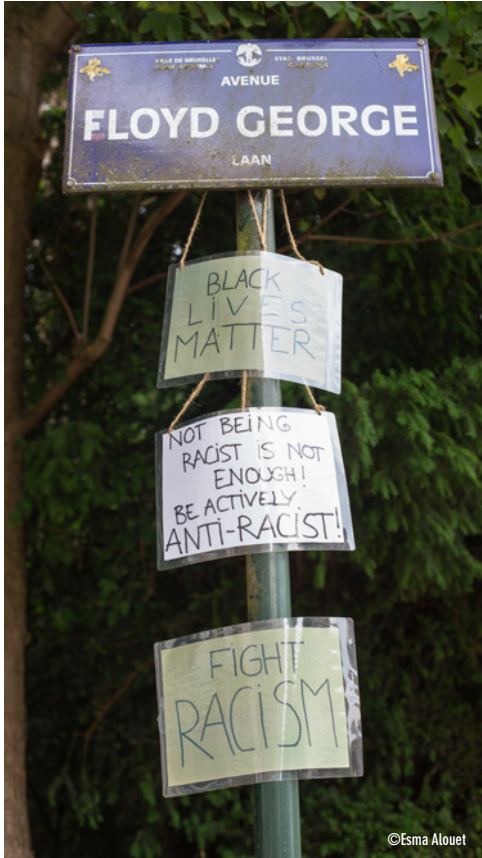 VILLE DE BRUXELLES STAD BRUSSEL
AVENUE
FLOYD GEORGE
LAAN
BLACK
LIVES
MATTER
NOT BEING
RACIST IS NOT
ENOUGH!
BE ACTIVELY
ANTI-RACIST!
FIGHT
RACISM
©Esma Alouet